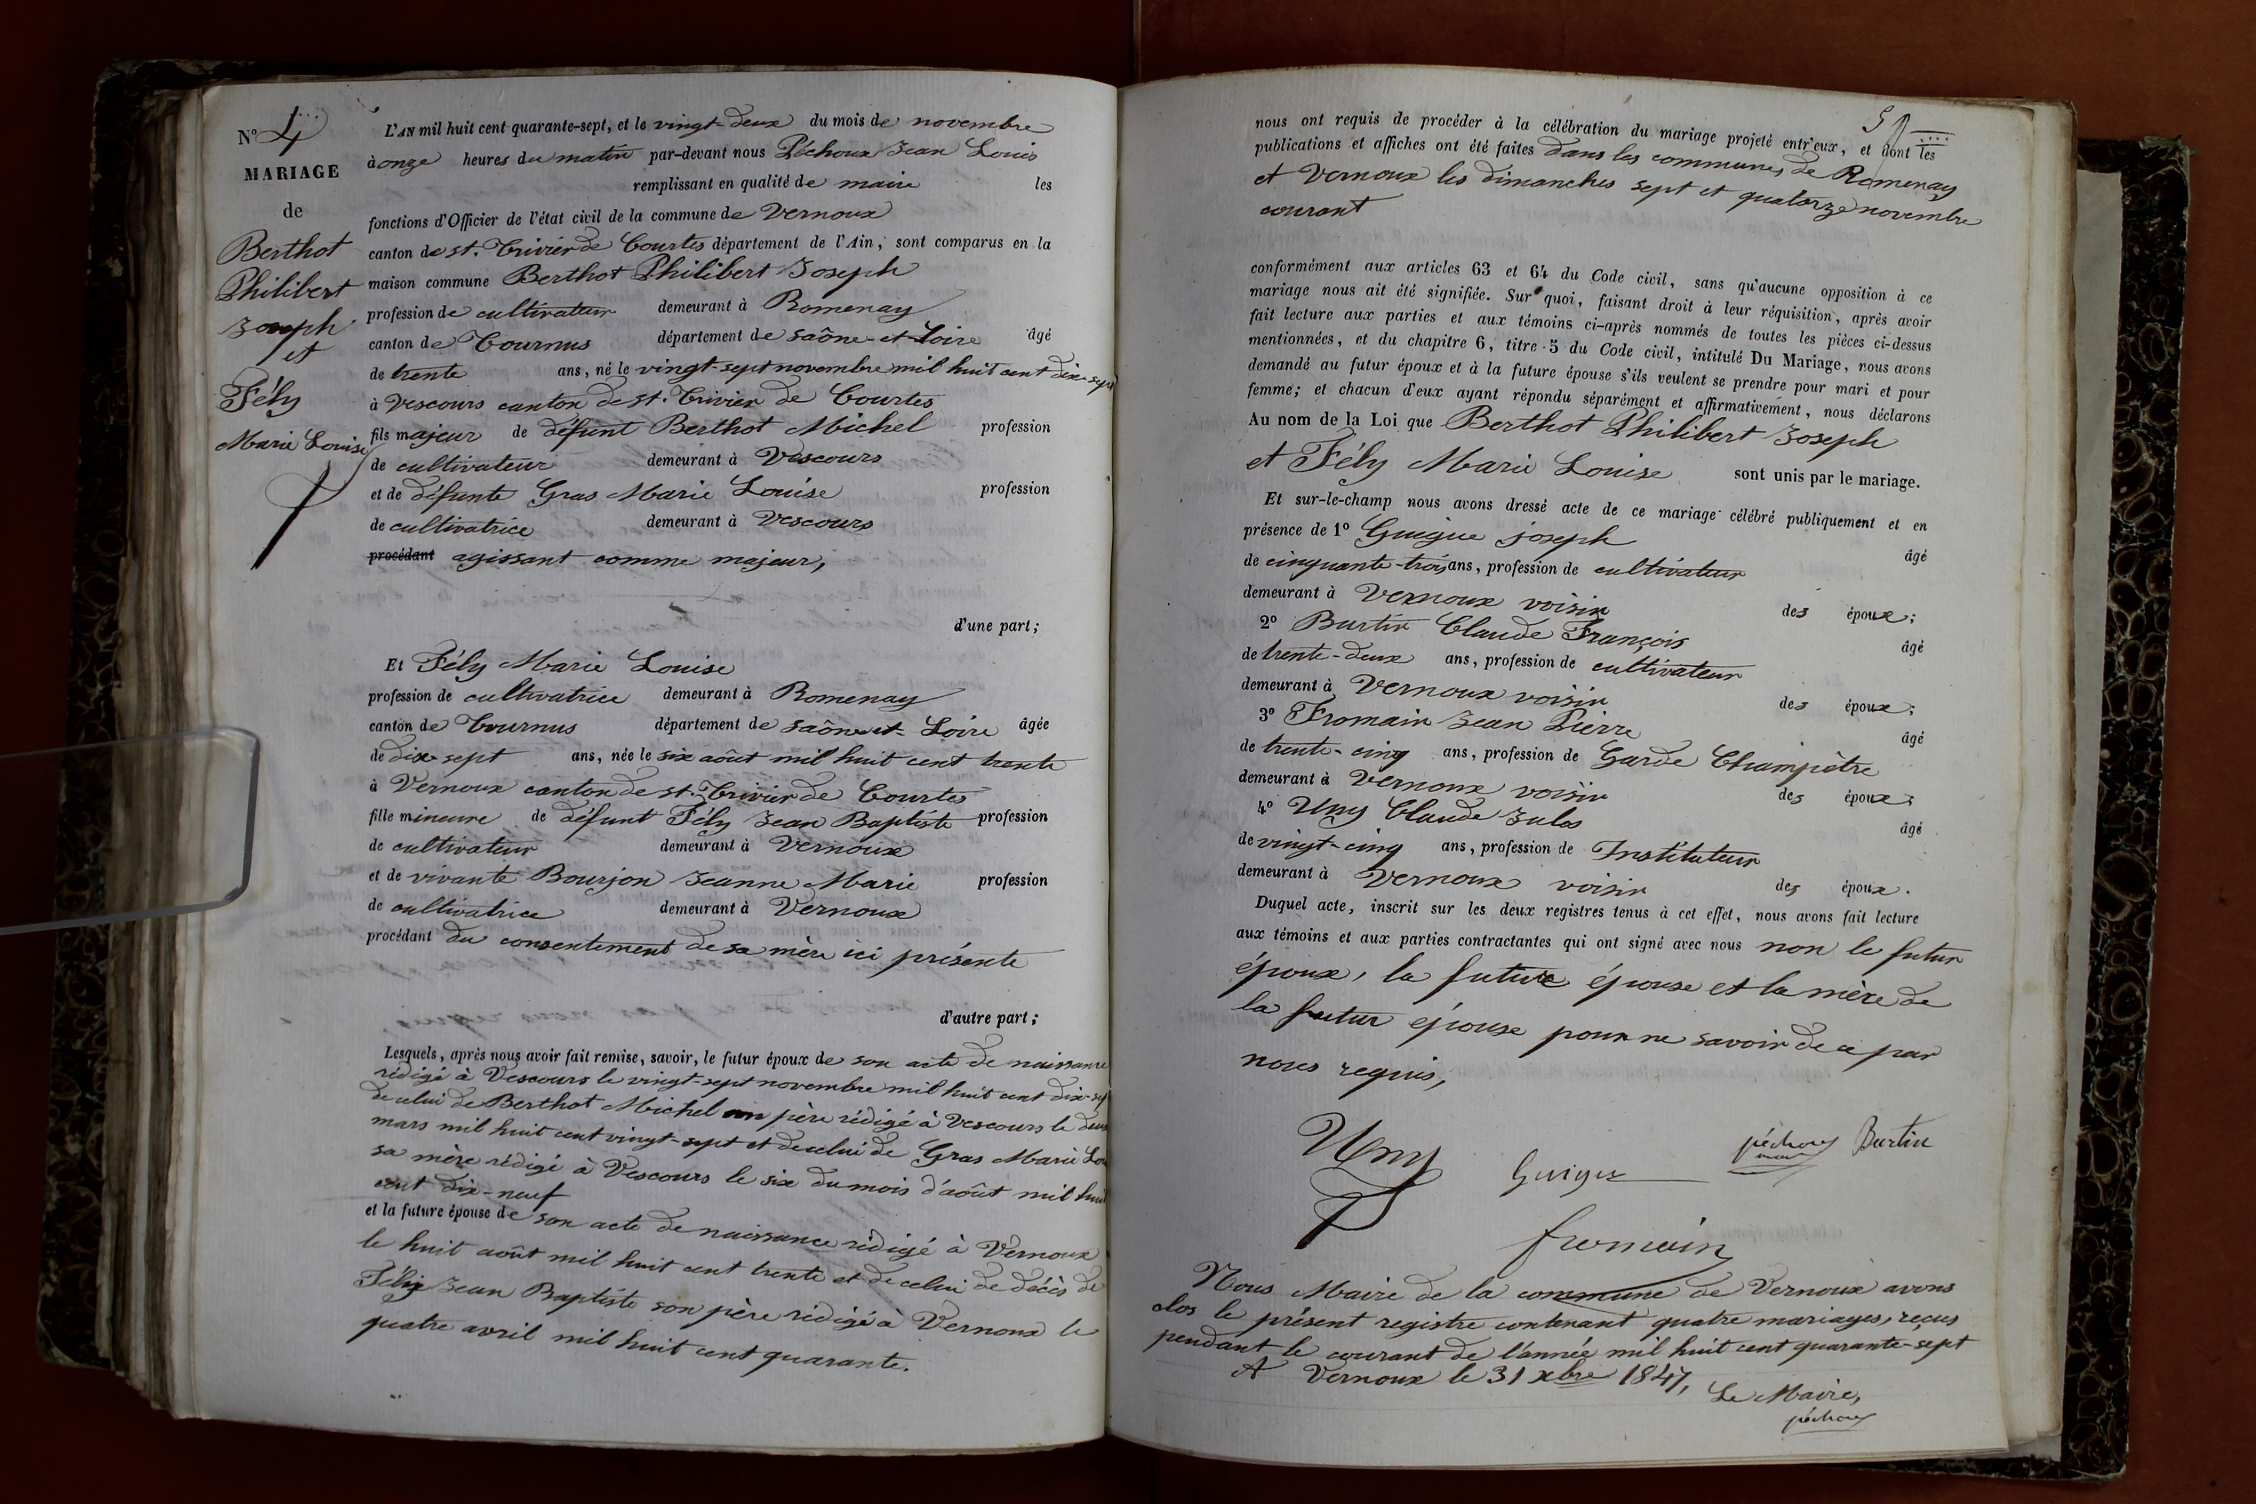 N.o 4
MARIAGE
de
Berthot
Philibert
Joseph
et
Fély
Marie Louise
L'AN mil huit cent quarante-sept, et le vingt-deux du mois de novembre
à onze heures du matin par-devant nous Péchoux Jean Louis
remplissant en qualité de maire les
fonctions d'Officier de l'état civil de la commune de Vernoux
canton de St. Trivier de Courtes département de l'Ain, sont comparus en la
maison commune Berthot Philibert Joseph
profession de cultivateur demeurant à Romenay
canton de Tournus département de Saône-et-Loire âgé
de trente ans, né le vingt-sept novembre mil huit cent dix-sept
à Vescours canton de St. Trivier de Courtes
fils majeur de défunt Berthot Michel profession
de cultivateur demeurant à Vescours
et de défunte Gras Marie Louise profession
de cultivatrice demeurant à Vescours
procédant agissant comme majeur,
d'une part;
Et Fély Marie Louise
profession de cultivatrice demeurant à Romenay
canton de Tournus département de Saône-et-Loire âgée
de dix-sept ans, née le six août mil huit cent trente
à Vernoux canton de St. Trivier de Courtes
fille mineure de défunt Fély Jean Baptiste profession
de cultivateur demeurant à Vernoux
et de vivante Bourjon Jeanne Marie profession
de cultivatrice demeurant à Vernoux
procédant du consentement de sa mère ici présente
d'autre part;
Lesquels, après nous avoir fait remise, savoir, le futur époux de son acte de naissance
rédigé à Vescours le vingt-sept novembre mil huit cent dix-sept
de celui de Berthot Michel son père rédigé à Vescours le deux
mars mil huit cent vingt-sept et de celui de Gras Marie Lou
sa mère rédigé à Vescours le six du mois d'août mil huit
cent dix-neuf
et la future épouse de son acte de naissance rédigé à Vernoux
le huit août mil huit cent trente et de celui de décès de
Fély Jean Baptiste son père rédigé à Vernoux le
quatre avril mil huit cent quarante.
nous ont requis de procéder à la célébration du mariage projeté entr'eux, et dont les
publications et affiches ont été faites dans les communes de Romenay
et Vernoux les dimanches sept et quatorze novembre
courant
conformément aux articles 63 et 64 du Code civil, sans qu'aucune opposition à ce
mariage nous ait été signifiée. Sur quoi, faisant droit à leur réquisition, après avoir
fait lecture aux parties et aux témoins ci-après nommés de toutes les pièces ci-dessus
mentionnées, et du chapitre 6, titre 5 du Code civil, intitulé Du Mariage, nous avons
demandé au futur époux et à la future épouse s'ils veulent se prendre pour mari et pour
femme; et chacun d'eux ayant répondu séparément et affirmativement, nous déclarons
Au nom de la Loi que Berthot Philibert Joseph
et Fély Marie Louise sont unis par le mariage.
Et sur-le-champ nous avons dressé acte de ce mariage célébré publiquement et en
présence de 1o Guigue joseph âgé
de cinquante-trois ans, profession de cultivateur
demeurant à Vernoux voisin des époux;
2o Burtin Claude François âgé
de trente-deux ans, profession de cultivateur
demeurant à Vernoux voisin des époux;
3o Fromain Jean Pierre âgé
de trente-cinq ans, profession de Garde Champêtre
demeurant à Vernoux voisin des époux;
4o Uny Claude Jules âgé
de vingt-cinq ans, profession de Instituteur
demeurant à Vernoux voisin des époux.
Duquel acte, inscrit sur les deux registres tenus à cet effet, nous avons fait lecture
aux témoins et aux parties contractantes qui ont signé avec nous non le futur
époux, la future épouse et la mère de
la futur épouse pour ne savoir de ce par
nous requis,
Uny Guigue péchoux maire Burtin
fromain
Nous Maire de la commune de Vernoux avons
clos le présent registre contenant quatre mariages, reçus
pendant le courant de l'année mil huit cent quarante-sept
A Vernoux le 31 xbre 1847,
Le Maire,
péchoux